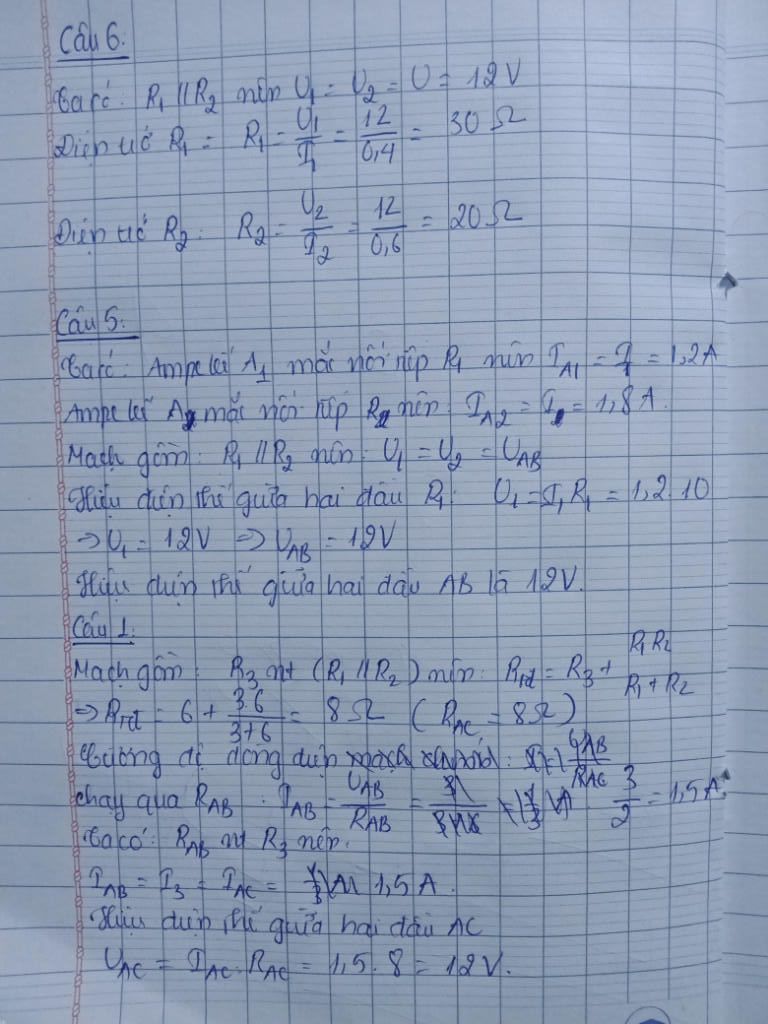 Câu 6:
Ta có: R₁ // R₂ nên U₁ = U₂ = U = 12V
Điện trở R₁ = R₁ = U₁/I₁ = 12/0,4 = 30 Ω
Điện trở R₂: R₂ = U₂/I₂ = 12/0,6 = 20 Ω
Câu 5:
Ta có: Ampe kế A₁ mắc nối tiếp R₁ nên I_A1 = I₁ = 1,2A
Ampe kế A₂ mắc nối tiếp R₂ nên: I_A2 = I₂ = 1,8A.
Mạch gồm: R₁ // R₂ nên: U₁ = U₂ = U_AB
Hiệu điện thế giữa hai đầu R₁: U₁ = I₁R₁ = 1,2.10
⇒ U₁ = 12V ⇒ U_AB = 12V
Hiệu điện thế giữa hai đầu AB là 12V.
Câu 1:
Mạch gồm: R₃ nt (R₁ // R₂) nên: R_tđ = R₃ + R₁R₂/R₁+R₂
⇒ R_tđ = 6 + 3.6/3+6 = 8Ω (R_AC = 8Ω)
Cường độ dòng điện
chạy qua R_AB: I_AB = U_AB/R_AB = 3/2 = 1,5A.
Ta có: R_AB nt R₃ nên.
I_AB = I₃ = I_AC = 1,5A.
Hiệu điện thế giữa hai đầu AC
U_AC = I_AC.R_AC = 1,5.8 = 12V.